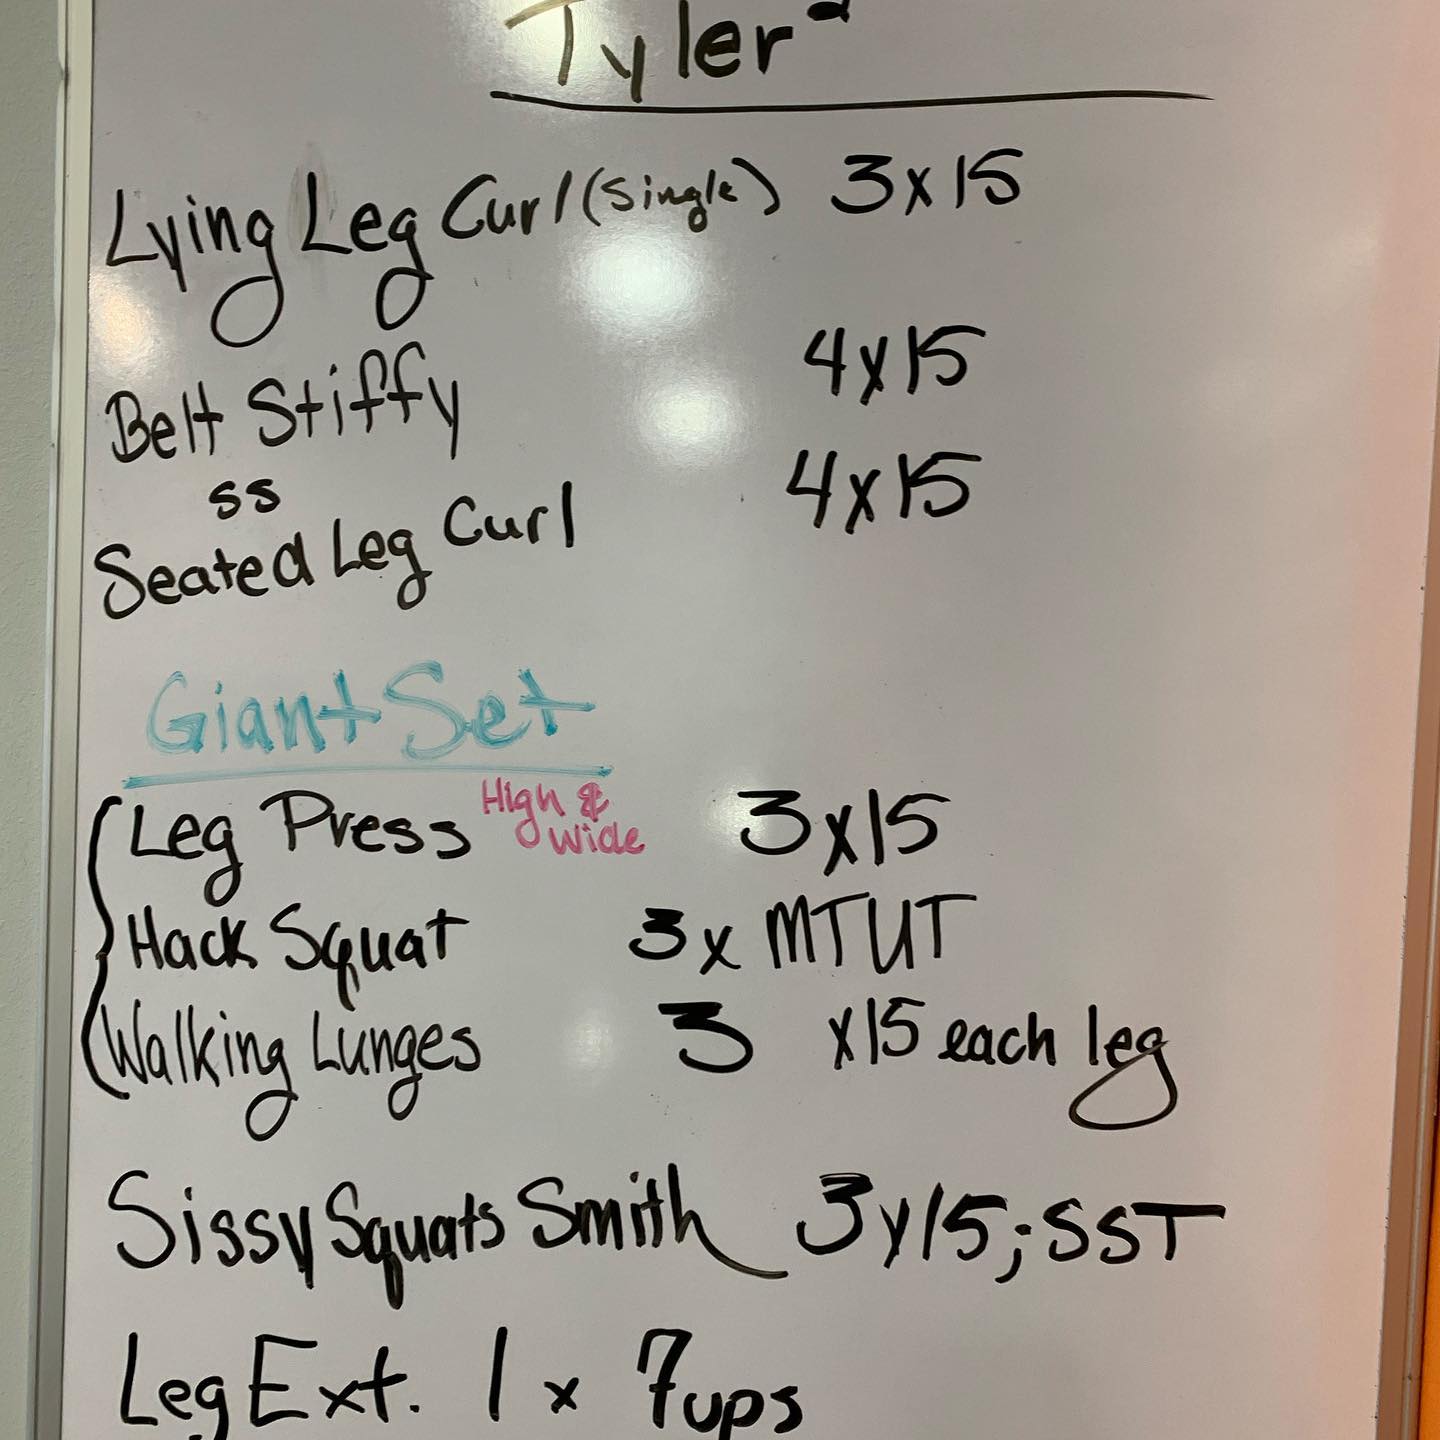 Tyler²
Lying Leg Curl (single) 3x15
Belt Stiffy 4x15
ss
Seated Leg Curl 4x15
Giant Set
Leg Press High & Wide 3x15
Hack Squat 3x MTUT
Walking Lunges 3 x15 each leg
Sissy Squats Smith 3x15; SST
Leg Ext. 1 x 7ups